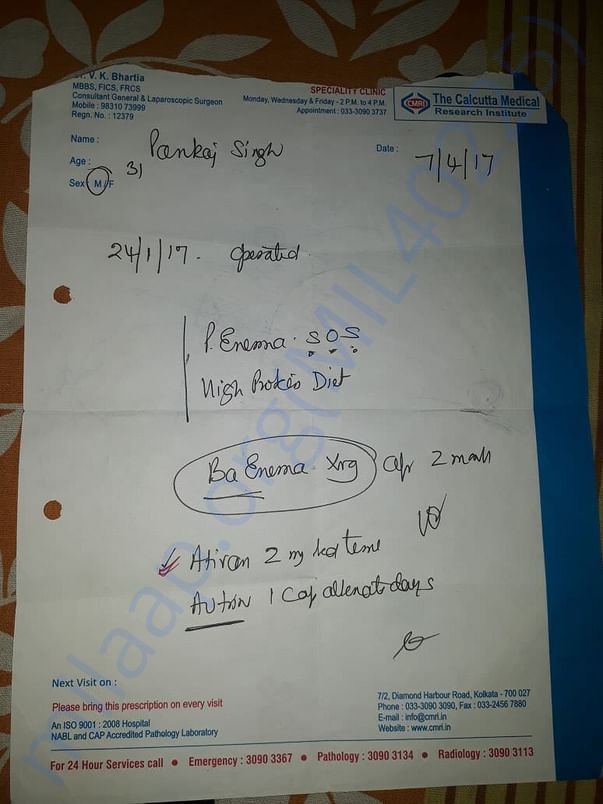 Dr. V. K. Bhartia
MBBS, FICS, FRCS
Consultant General & Laparoscopic Surgeon
Mobile : 98310 73999
Regn. No. : 12379
SPECIALITY CLINIC
Monday, Wednesday & Friday - 2 P.M. to 4 P.M.
Appointment : 033-3090 3737
CMRI
The Calcutta Medical
Research Institute
Name : Pankaj Singh
Date : 7/4/17
Age : 31
Sex : M/F
24/1/17. operated
P. Enema. SOS
High Protein Diet
Ba Enema Xray after 2 month
Ativan 2 mg bed time
Autrin 1 Cap alternate days
Next Visit on :
Please bring this prescription on every visit
An ISO 9001 : 2008 Hospital
NABL and CAP Accredited Pathology Laboratory
7/2, Diamond Harbour Road, Kolkata - 700 027
Phone : 033-3090 3090, Fax : 033-2456 7880
E-mail : info@cmri.in
Website : www.cmri.in
For 24 Hour Services call • Emergency : 3090 3367 • Pathology : 3090 3134 • Radiology : 3090 3113